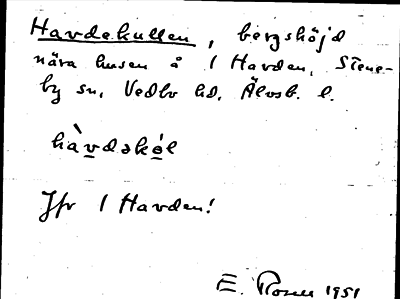 Hardekullen, bergshöjd
nära husen å 1 Harden, Stene-
by sn, Vedbo hd, Älvsb. l.
hàrdəkél
Jfr 1 Harden!
E. Rosell 1951